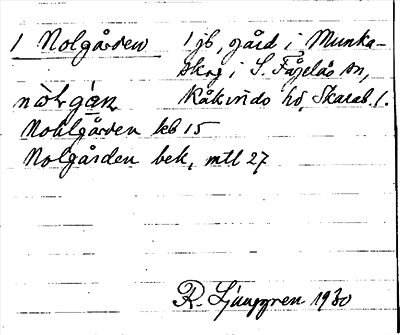 1 Nolgården 1 jb, gård i Munka-
skog i S. Fågelås sn,
nòlgán Kåkinds hd, Skarab. l.
Nohlgården kb 15
Nolgården bek, mtl 27
R. Ljunggren 1930